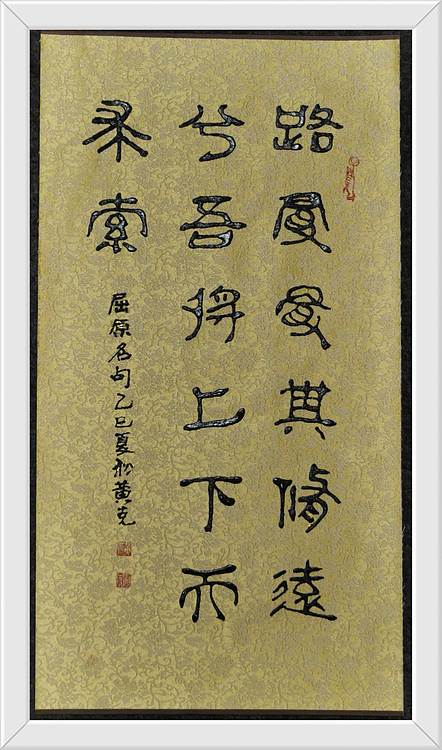 路曼曼其脩遠
兮吾將上下而
求索
屈原名句乙巳夏初黄克